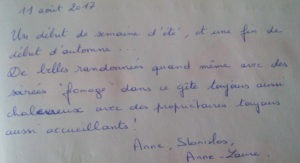 11 août 2017
Un début de semaine d'été, et une fin de
début d'automne...
De belles randonnées quand même avec des
soirées "fromage" dans ce gîte toujours aussi
chaleureux avec des propriétaires toujours
aussi accueillants !
Anne, Stanislas,
Anne-Laure.